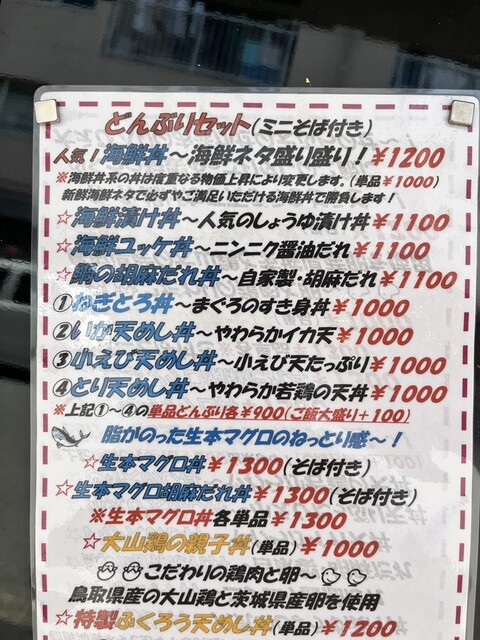 どんぶりセット(ミニそば付き)
人気!海鮮丼〜海鮮ネタ盛り盛り!¥1200
※海鮮丼系の丼は度重なる物価上昇により変更します。(単品¥1000)
新鮮海鮮ネタで必ずやご満足いただける海鮮丼で勝負します!
☆海鮮漬け丼〜人気のしょうゆ漬け丼¥1100
☆海鮮ユッケ丼〜ニンニク醤油だれ¥1100
☆鯛の胡麻だれ丼〜自家製・胡麻だれ¥1100
①ねぎとろ丼〜まぐろのすき身丼¥1000
②いか天めし丼〜やわらかイカ天¥1000
③小えび天めし丼〜小えび天たっぷり¥1000
④とり天めし丼〜やわらか若鶏の天丼¥1000
※上記①〜④の単品どんぶり各¥900(ご飯大盛り+100)
脂かのった生本マグロのねっとり感〜!
☆生本マグロ丼¥1300(そば付き)
☆生本マグロ胡麻だれ丼¥1300(そば付き)
※生本マグロ丼各単品¥1300
☆大山鶏の親子丼(単品)¥1000
こだわりの鶏肉と卵〜
鳥取県産の大山鶏と茨城県産卵を使用
☆特製ふくろう天めし丼(単品)¥1200